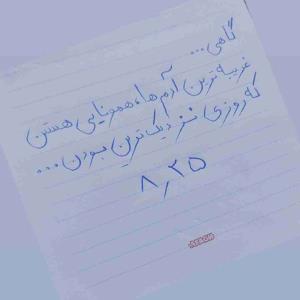 گاهی...
غریبه ترین آدم ها، همونایی هستن
که روزی نزدیک ترین بودن...
۸٫۲۵